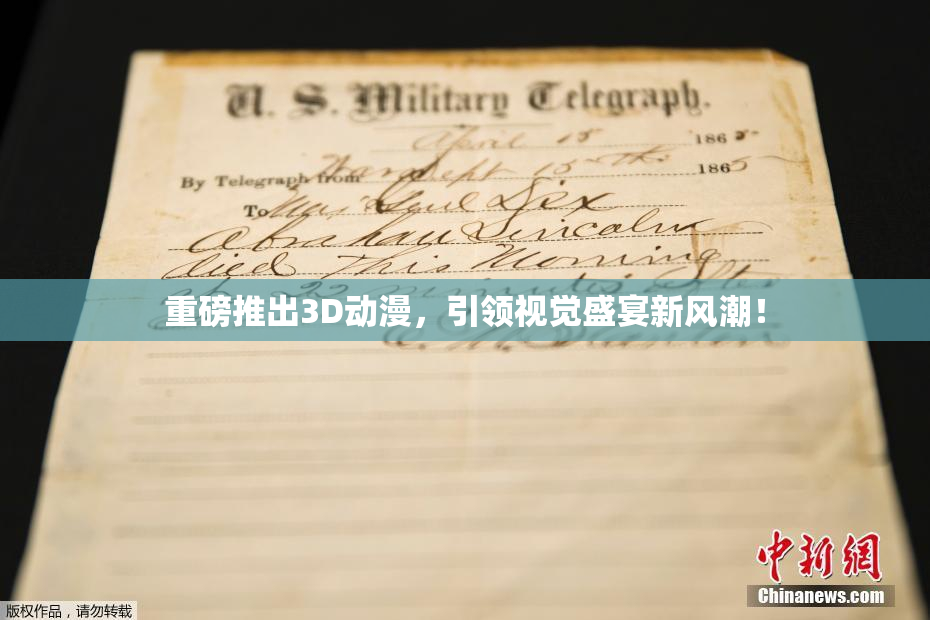 U. S. Military Telegraph.
April 15 1865
By Telegraph from War Dept 15th 1865
To Maj Genl Dix
Abraham Lincoln
died This Morning
at 22 minutes after
重磅推出3D动漫，引领视觉盛宴新风潮！
E. M. Stanton
中新网
Chinanews.com
版权作品，请勿转载